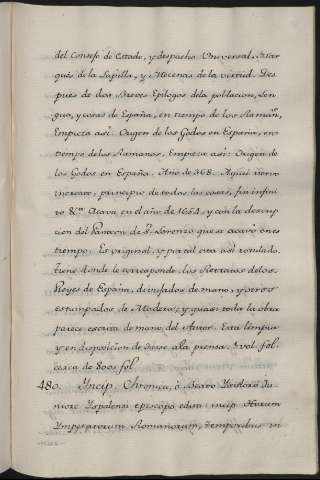 del Consejo de Estado, y despacho Universal, Mar
qués de la Lapilla, y Mecenas de la virtud. Des
pues de dos Breves Epilogos dela poblacion, Len
gua, y cosas de España, en tiempo de los Roman,s
Empieza asi: Origen de los Godos en España, en
tiempo de los Romanos, Empieza asi: Origen de
los Godos en España. Año de 368. Aquel
principio de todas las cosas, fin infini
to &.ª Acava en el año de 1654, y con la descrip
cion del Panteon de S. Lorenzo que se acavó en es
tiempo. Es original, y por tal esta asi rotulado.
Tiene donde le corresponde, los Retratos de los
Reyes de España, dibujados de mano, y otros
estampados de Madera; y quasi toda la obra
parece escrita de mano del Autor. Esta limpia
y en disposicion de darse ala prensa. vol. fol.
cerca de 800 s fol.
480. Yncip. Chronica, ò Beato Ysidoro Ju-
niore Yspalensi episcopo edita: incip. Harum
Ymperatorum Romanorum, temporibus in